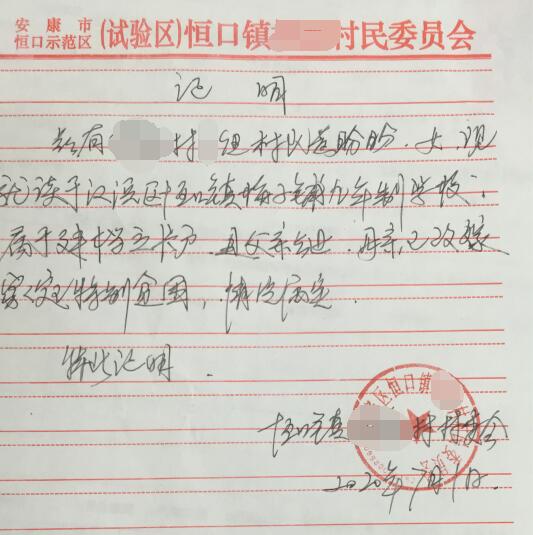 安康市
恒口示范区(试验区)恒口镇 村民委员会
证明
兹有 村 组村民 盼盼,女,现
就读于汉滨区恒口镇梅子铺九年制学校,
属于建档立卡户,且父亲去世,母亲已改嫁
家庭特别贫困,情况属实.
特此证明.
恒口镇 村村委会
2020年7月1日.